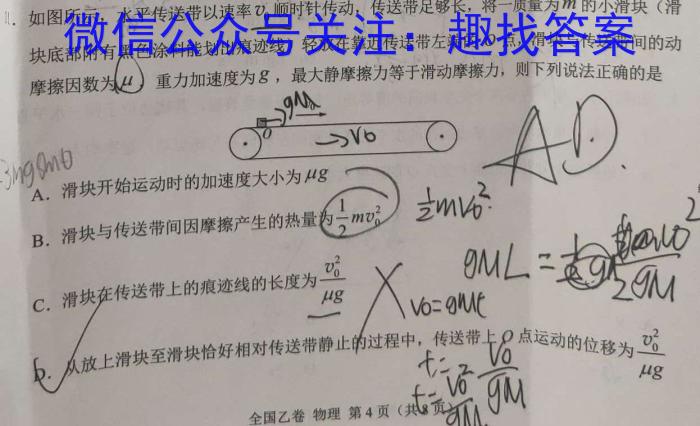 如图所示，水平传送带以速率v₀顺时针传动，传送带足够长，将一质量为m的小滑块（滑
微信公众号关注：趣找答案
块底部附有黑色涂料能划出痕迹线）轻放在靠近传送带左端的O点，滑块与传送带间的动
摩擦因数为μ，重力加速度为g，最大静摩擦力等于滑动摩擦力，则下列说法正确的是
gM
O
→v0
AD.
A. 滑块开始运动时的加速度大小为μg
B. 滑块与传送带间因摩擦产生的热量为½mv₀²
½mv₀²
gML =
2gM
C. 滑块在传送带上的痕迹线的长度为v₀²/μg
v0=gMt
D. 从放上滑块至滑块恰好相对传送带静止的过程中，传送带上O点运动的位移为v₀²/μg
t= v0/gM
全国乙卷 物理 第4页（共8页）